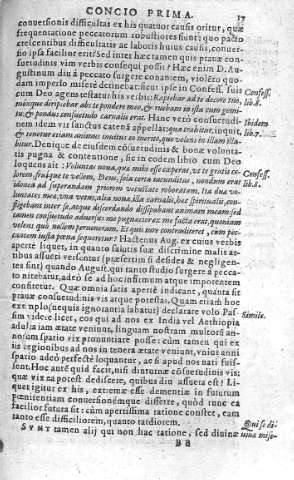 CONCIO PRIMA. 17
conuersionis difficultas ex his quatuor causis oritur, quæ
frequentatione peccatorum robustiores fiunt: quo pacto
crescentibus difficultatis ac laboris huius causis, conuer-
tio ipsa facilior erit? Sed inter hæc tamen quis prauæ con-
suetudinis vim verbis consequi possit? Hæc enim D. Au-
gustinum diu à peccato surgere conantem, violéto quo-
dam imperio miserè detinebat: sicut ipse in Confess. suis
cum Deo agens testatur his verbis: Rapiebar ad te decore tuo, lib. 8.
móxque diripiebar abs te pondere meo, & ruebam in ista cum gemi-
tu: & pondus consuetudo carnalis erat. Hanc verò consuetudi-
nem idem vir sanctus catená appellat: qua
& tenetur etiam animus inuitus eo merito, quo volens in illam illa-
bitur. Denique de eiusdem cósuetudinis & bonæ volunta-
tis pugna & contentione, sic in eodem libro cum Deo
loquens ait: Voluntas noua, quæ mihi esse cœperat, vt te gratis co-
lerem, fruíque te vellem, Deus, sola certa iucunditas, nondum erat
idonea ad superandam priorem vetustate roboratam, ita duæ vo-
luntates meæ, vna vetus, alia noua, illa carnalis, hæc spiritualis, con-
fligebant inter se, atque discordando dissipabant animam meam: sed
tamen consuetudo aduersùs me pugnacior ex me facta erat, quoniam
volens quò nollem perueneram. Et quis iure contradiceret, cùm pec-
cantem iusta pœna sequeretur? Hactenus Aug. ex cuius verbis
apertè liquet, in quanto salutis suæ discrimine malis ex-
tibus assueti versentur (præsertim si desides & negligen-
tes sint) quando August. qui tanto studio surgere à pecca-
to nitebatur, adeò se ad hoc infirmum atque impotentem
confitetur. Quæ omnia satis apertè indicant, quanta sit
prauæ consuetudinis vis atque potestas. Quam etiam hoc
exemplo (nequis ignorantia labatur) declarare volo. Pas-
sim videre licet, eos qui ad nos ex India vel Aethiopia
adulta iam ætate veniunt, linguam nostram multorū an-
norum spatio vix pronuntiare posse: cùm tamen qui ex
iis regionibus ad nos in tenera ætate veniunt, vnius anni
spatio adeò perfectè loquantur, ac si apud nos nati fuis-
sent. Hoc autē quid facit, nisi diuturnæ cōsuetudinis vis:
quæ vix ea potest dediscere, quibus diu assueta est? Li-
quet igitur ex his, extremæ esse dementiæ in futurum
pœnitentiam conuersionémque differre, quòd tunc ea
facilior futura sit: cùm apertissima ratione constet, eam
tanto esse difficiliorem, quanto tardiorem.
SVNT tamen alij qui non hac ratione, sed diuinæ
BB
Confess.
Ibidem
lib. 7.
Confess.
lib. 8.
Simile.
Qui se di-
uina mise-